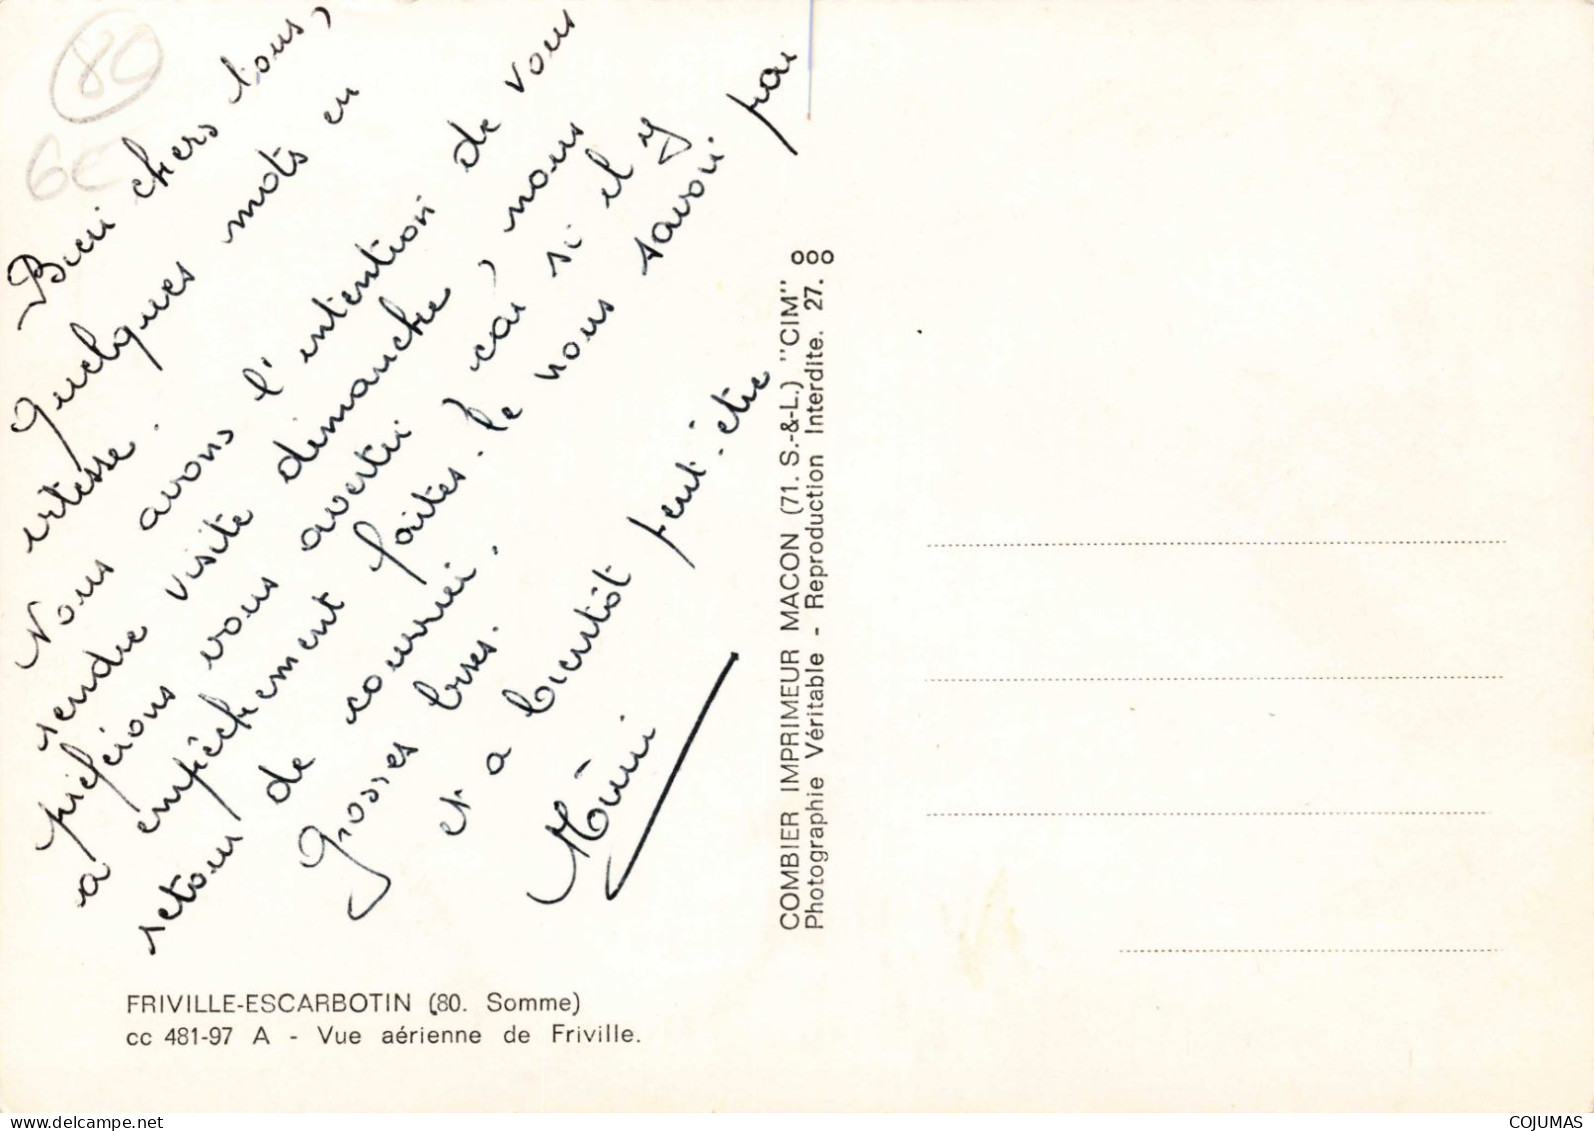 80
6€
Bien chers tous,
Quelques mots en
vitesse.
Nous avons l'intention de vous
rendre visite dimanche, nous
préférions vous avertir car si il y
a empêchement faites-le nous savoir par
retour de courrier.
Grosses bises.
et a bientôt peut-être
FRIVILLE-ESCARBOTIN (80. Somme)
cc 481-97 A - Vue aérienne de Friville.
COMBIER IMPRIMEUR MACON (71. S.-&-L.) "CIM"
Photographie Véritable - Reproduction Interdite. 27.
COJUMAS